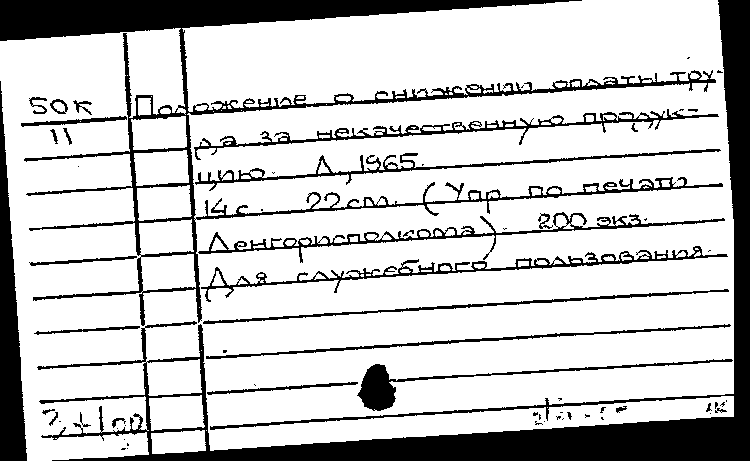 50к Положение о снижении оплаты тру-
11 да за некачественную продук-
цию. Л., 1965.
14 с. 22 см. (Упр. по печати
Ленгорисполкома). 200 экз.
Для служебного пользования.